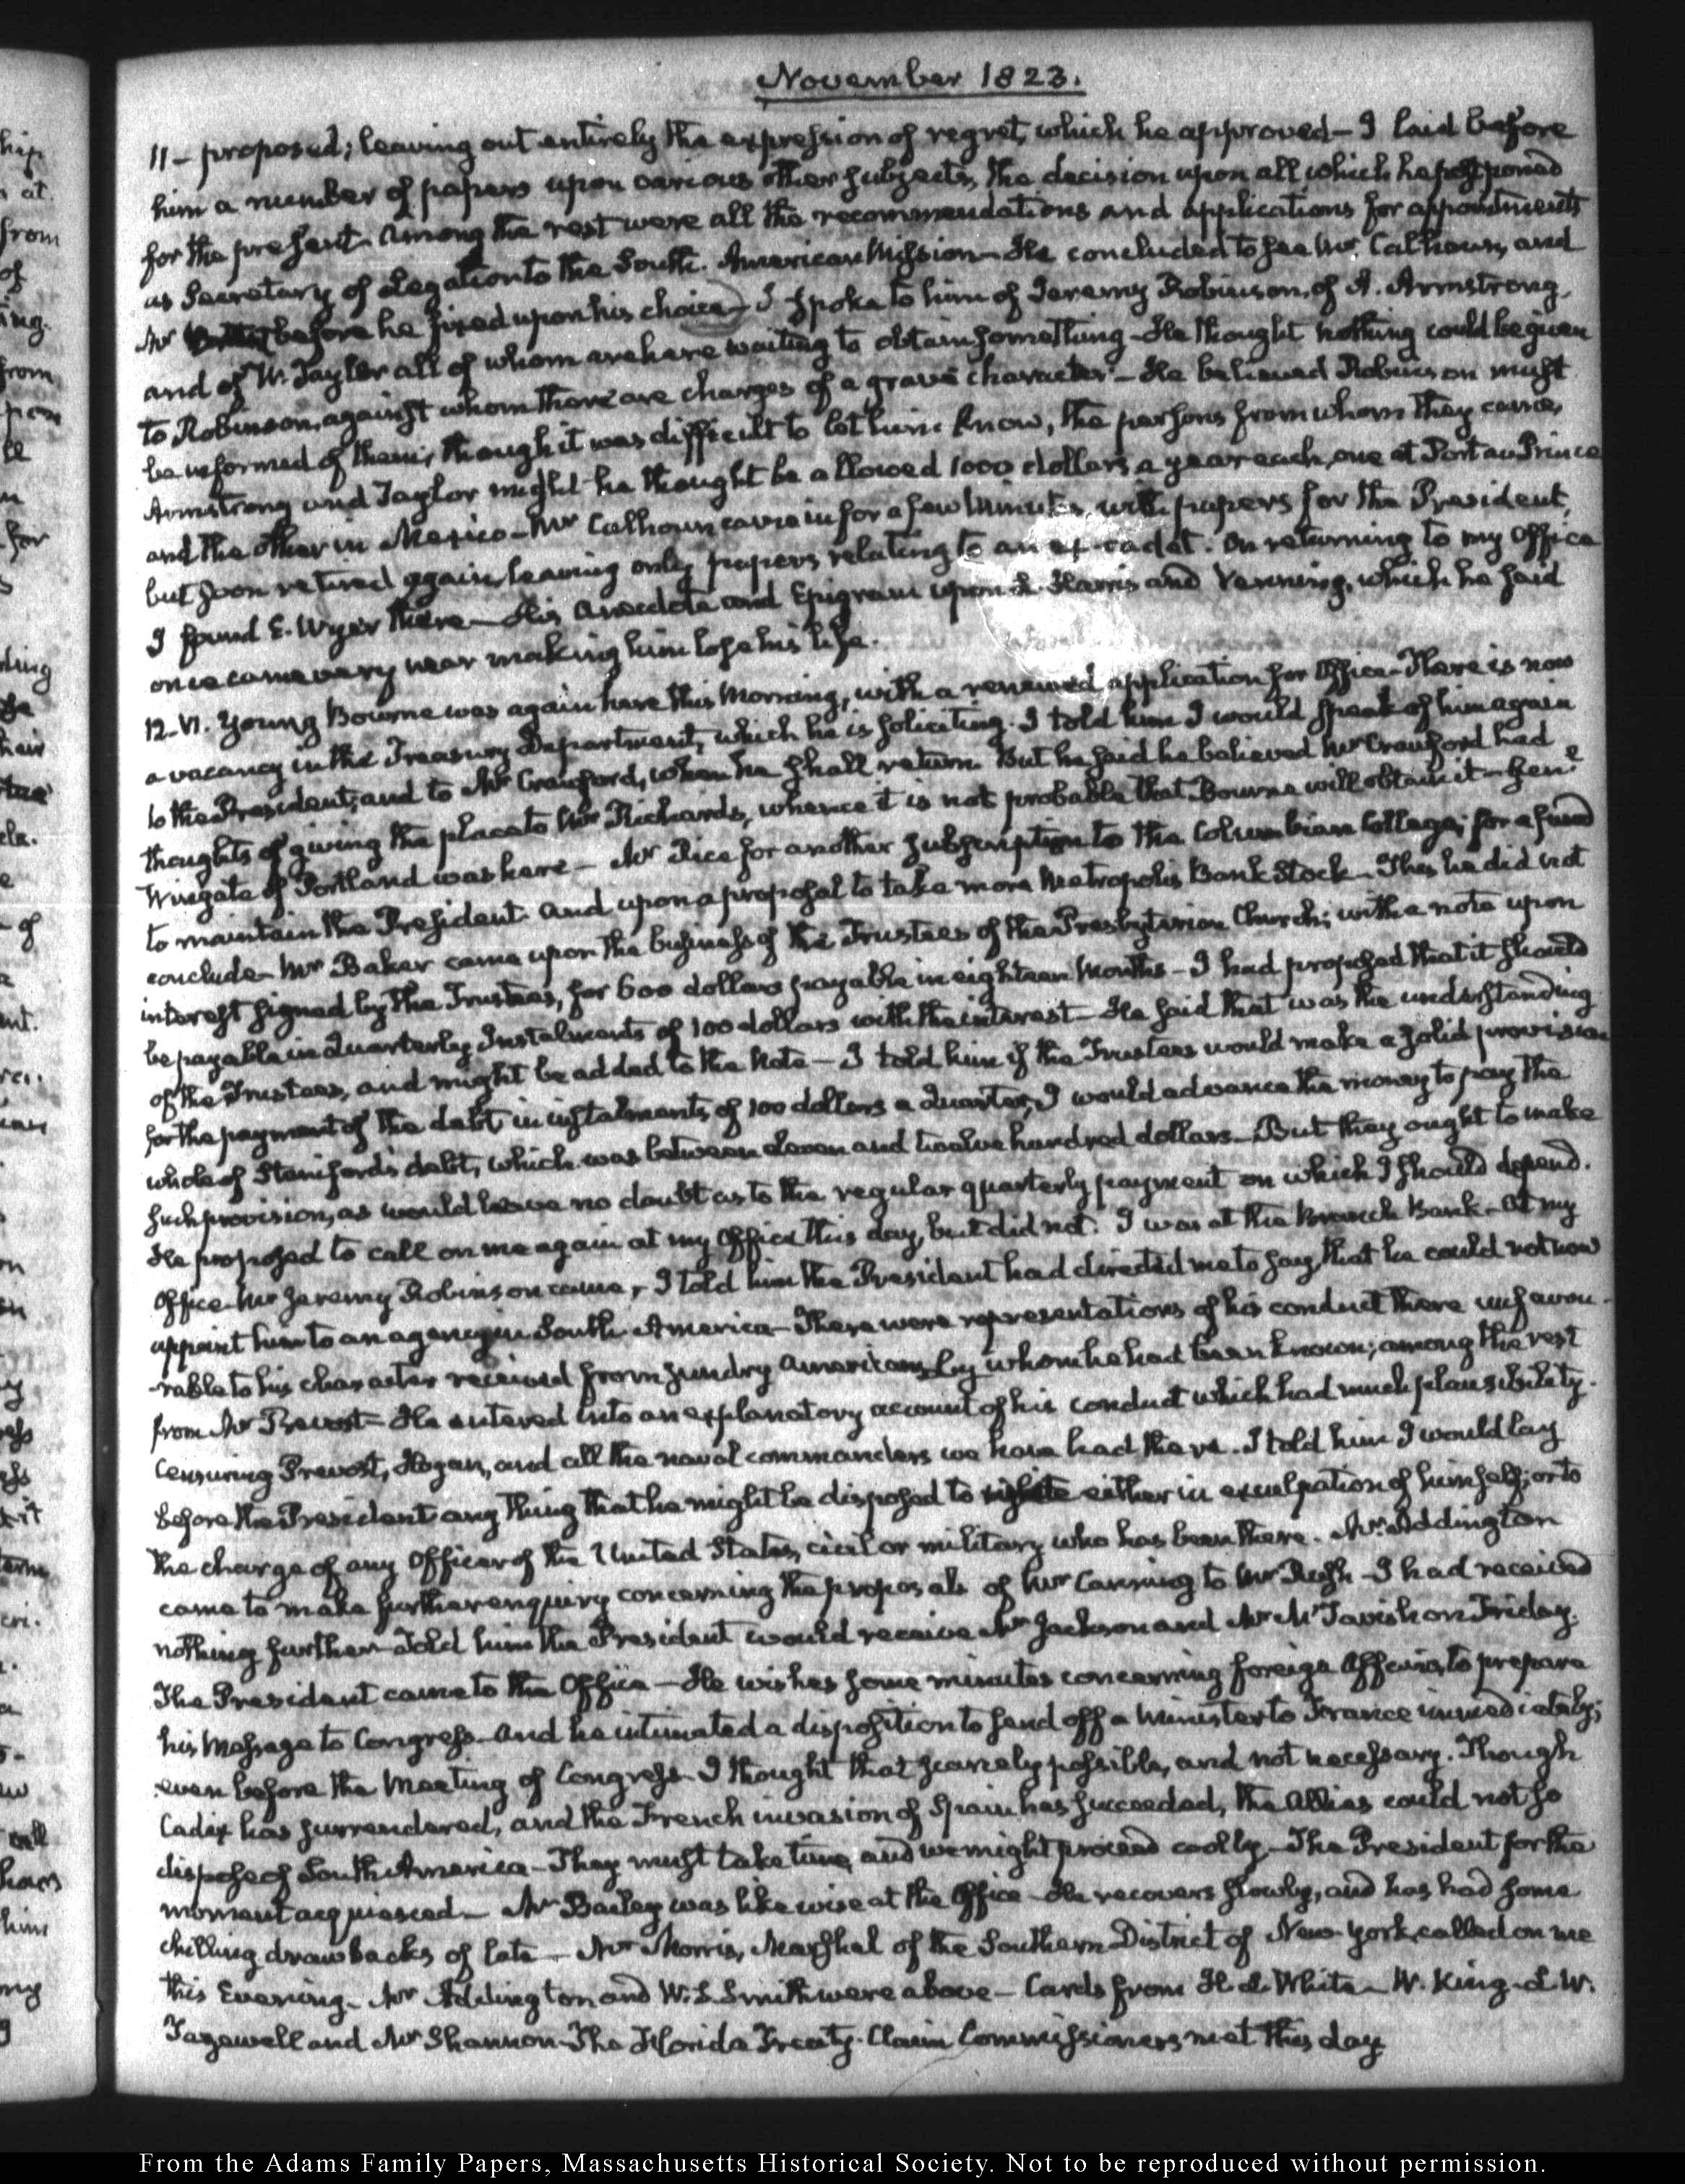 November 1823.
11 – proposed; leaving out entirely the expression of regret, which he approved – I laid before
him a number of papers upon various other subjects, the decision upon all which he postponed
for the present – Among the rest were all the recommendations and applications for appointments
as Secretary of Legation to the South. American Mission – He concluded to see Mr Calhoun, and
Mr before he fixed upon his choice – I spoke to him of Jeremy Robinson, of A. Armstrong,
and of W. Taylor all of whom are here waiting to obtain something – He thought nothing could be given
to Robinson, against whom there are charges of a grave character – He believed Robinson must
be informed of them, though it was difficult to let him know, the persons from whom they came,
Armstrong and Taylor might he thought be allowed 1000 dollars a year each, one at Port au Prince
and the other in Mexico – Mr Calhoun came in for a few minutes, with papers for the President,
but soon retired again, leaving only papers relating to an ex-cadet. On returning to my Office
I found E. Wyer there – His anecdote and Epigram upon L. Harris and Venning, which he said
once came very near making him lose his life.
12. VI. Young Bourne was again here this Morning, with a renewed application for Office – There is now
a vacancy in the Treasury Department, which he is soliciting. I told him I would speak of him again
to the President, and to Mr Crawford, when he shall return. But he said he believed Mr Crawford had
thoughts of giving the place to Mr Richards, whence it is not probable that Bourne will obtain it – Genl
Wingate of Portland was here – Mr Rice for another subscription to the Columbian College; for a fund
to maintain the President. And upon a proposal to take more Metropolis Bank Stock – This he did not
conclude – Mr Baker came upon the business of the Trustees of the Presbyterian Church; with a note upon
interest signed by the Trustees, for 600 dollars payable in eighteen Months – I had proposed that it should
be payable in Quarterly Instalments of 100 dollars with the interest – He said that was the understanding
of the Trustees, and might be added to the Note – I told him if the Trustees would make a solid provision
for the payment of the debt in instalments of 100 dollars a Quarter, I would advance the money to pay the
whole of Staniford's debt, which was between eleven and twelve hundred dollars – But they ought to make
such provision, as would leave no doubt as to the regular quarterly payment on which I should depend.
He proposed to call on me again at my Office this day, but did not. I was at the Branch Bank – At my
Office Mr Jeremy Robinson came, I told him the President had directed me to say, that he could not now
appoint him to an agency in South America – There were representations of his conduct there unfavou-
-rable to his character received from sundry Americans, by whom he had been known; among the rest
from Mr Prevost – He entered into an explanatory account of his conduct which had much plausibility.
Censuring Prevost, Hogan, and all the naval commanders we have had there. I told him I would lay
before the President any thing that he might be disposed to either in exculpation of himself; or to
the charge of any Officer of the United States, civil or military who has been there. Mr Addington
came to make further enquiry concerning the proposals of Mr Canning to Mr Rush – I had received
nothing further – Told him the President would receive Mr Jackson and Mr McTavish on Friday.
The President came to the Office – He wishes some minutes concerning foreign Affairs, to prepare
his Message to Congress – And he intimated a disposition to send off a Minister to France immediately;
even before the Meeting of Congress – I thought that scarcely possible, and not necessary. Though
Cadiz has surrendered, and the French invasion of Spain has succeeded, the Allies could not so
dispose of South America – They must take time, and we might proceed coolly – The President for the
moment acquiesced – Mr Bailey was likewise at the Office – He recovers slowly, and has had some
chilling drawbacks of late – Mr Morris, Marshal of the Southern District of New-York, called on me
this Evening – Mr Addington and W. S. Smith were above – Cards from H. L. White – W. King – L. W.
Tazewell and Mr Shannon – The Florida Treaty Claim Commissioners met this day
From the Adams Family Papers, Massachusetts Historical Society. Not to be reproduced without permission.